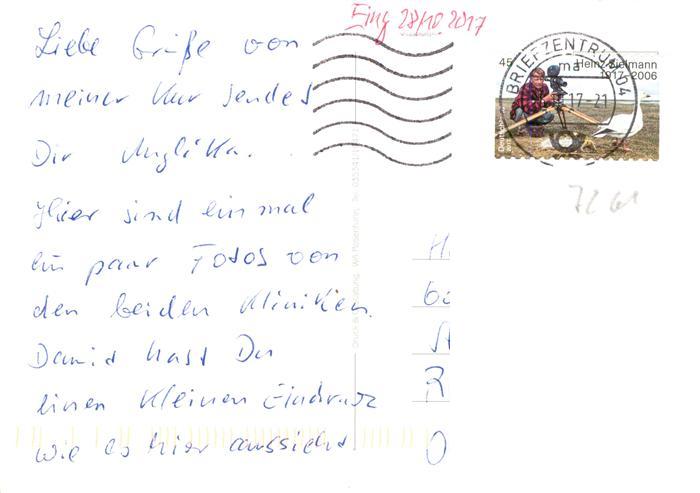 Eing 28/10 2017
Liebe Grüße von
meiner Kur sendet
Dir Anglika.
Hier sind einmal
ein paar Fotos von
den beiden Kliniken.
Damit hast Du
einen kleinen Eindruck
wie es hier aussieht
45
Heinz Sielmann
1917-2006
BRIEFZENTRUM 04
ma
17-21